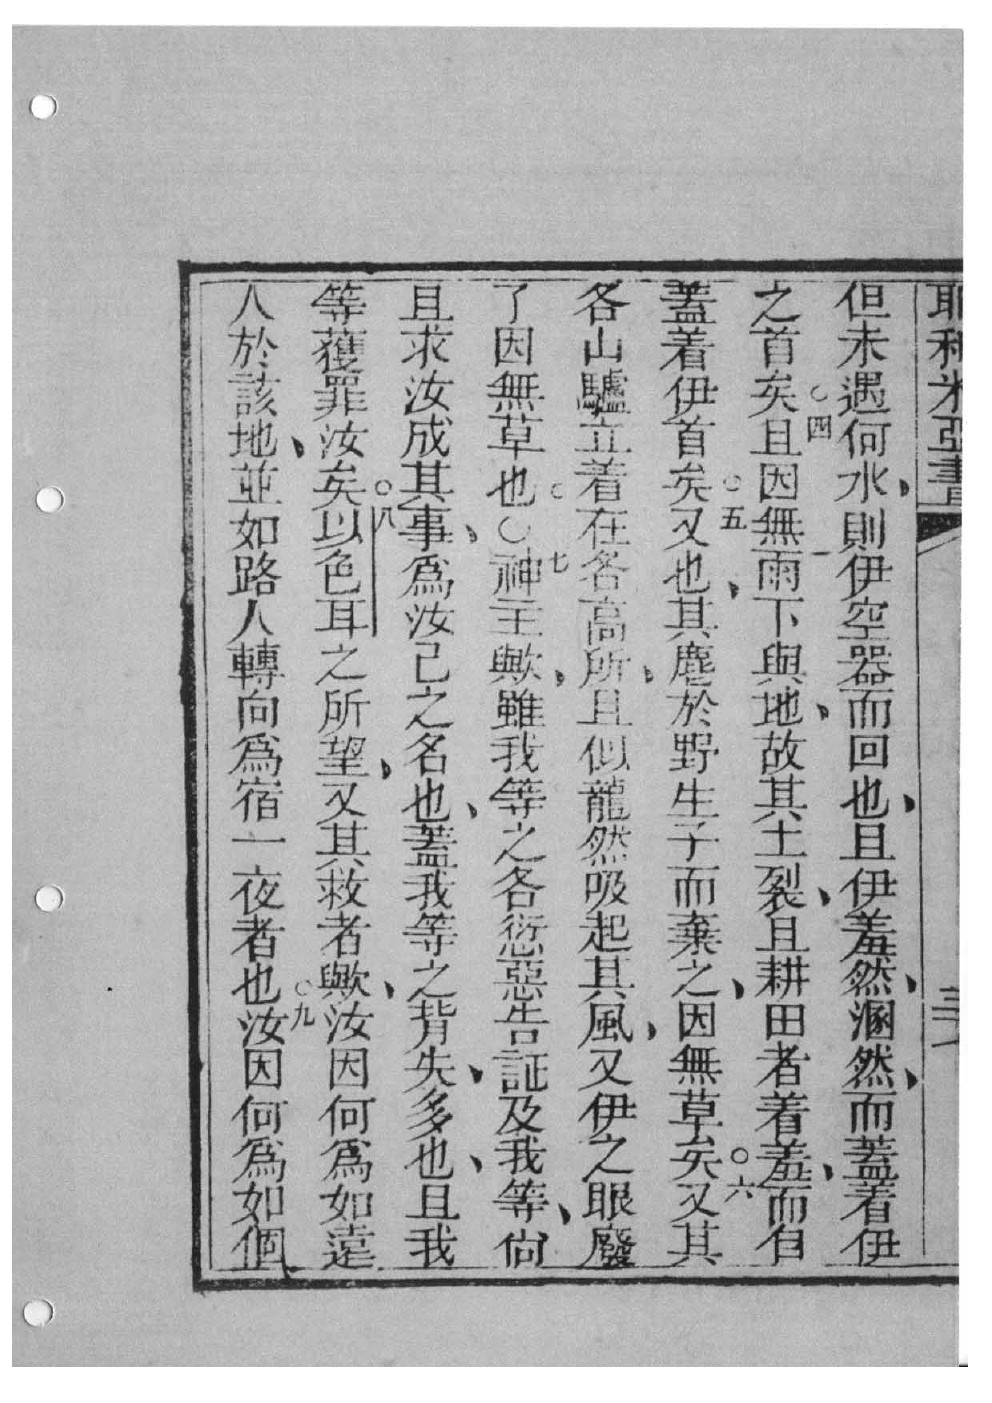 耶利米亞書
但未遇何水、則伊空器而回也、且伊羞然、溷然、而蓋着伊
之首矣○四且因無雨下與地、故其土裂、且耕田者着羞、而自
蓋着伊首矣○五又也、其麀於野生子而棄之、因無草矣○六又其
各山驢立着在各高所、且似龍然吸起其風、又伊之眼廢
了因無草也○○七神主歟、雖我等之各愆惡告証及我等、尙
且求汝成其事、為汝己之名也、蓋我等之背失、多也、且我
等獲罪汝矣○八以色耳之所望、又其救者歟、汝因何為如遠
人於該地、並如路人轉向為宿一夜者也○九汝因何為如個